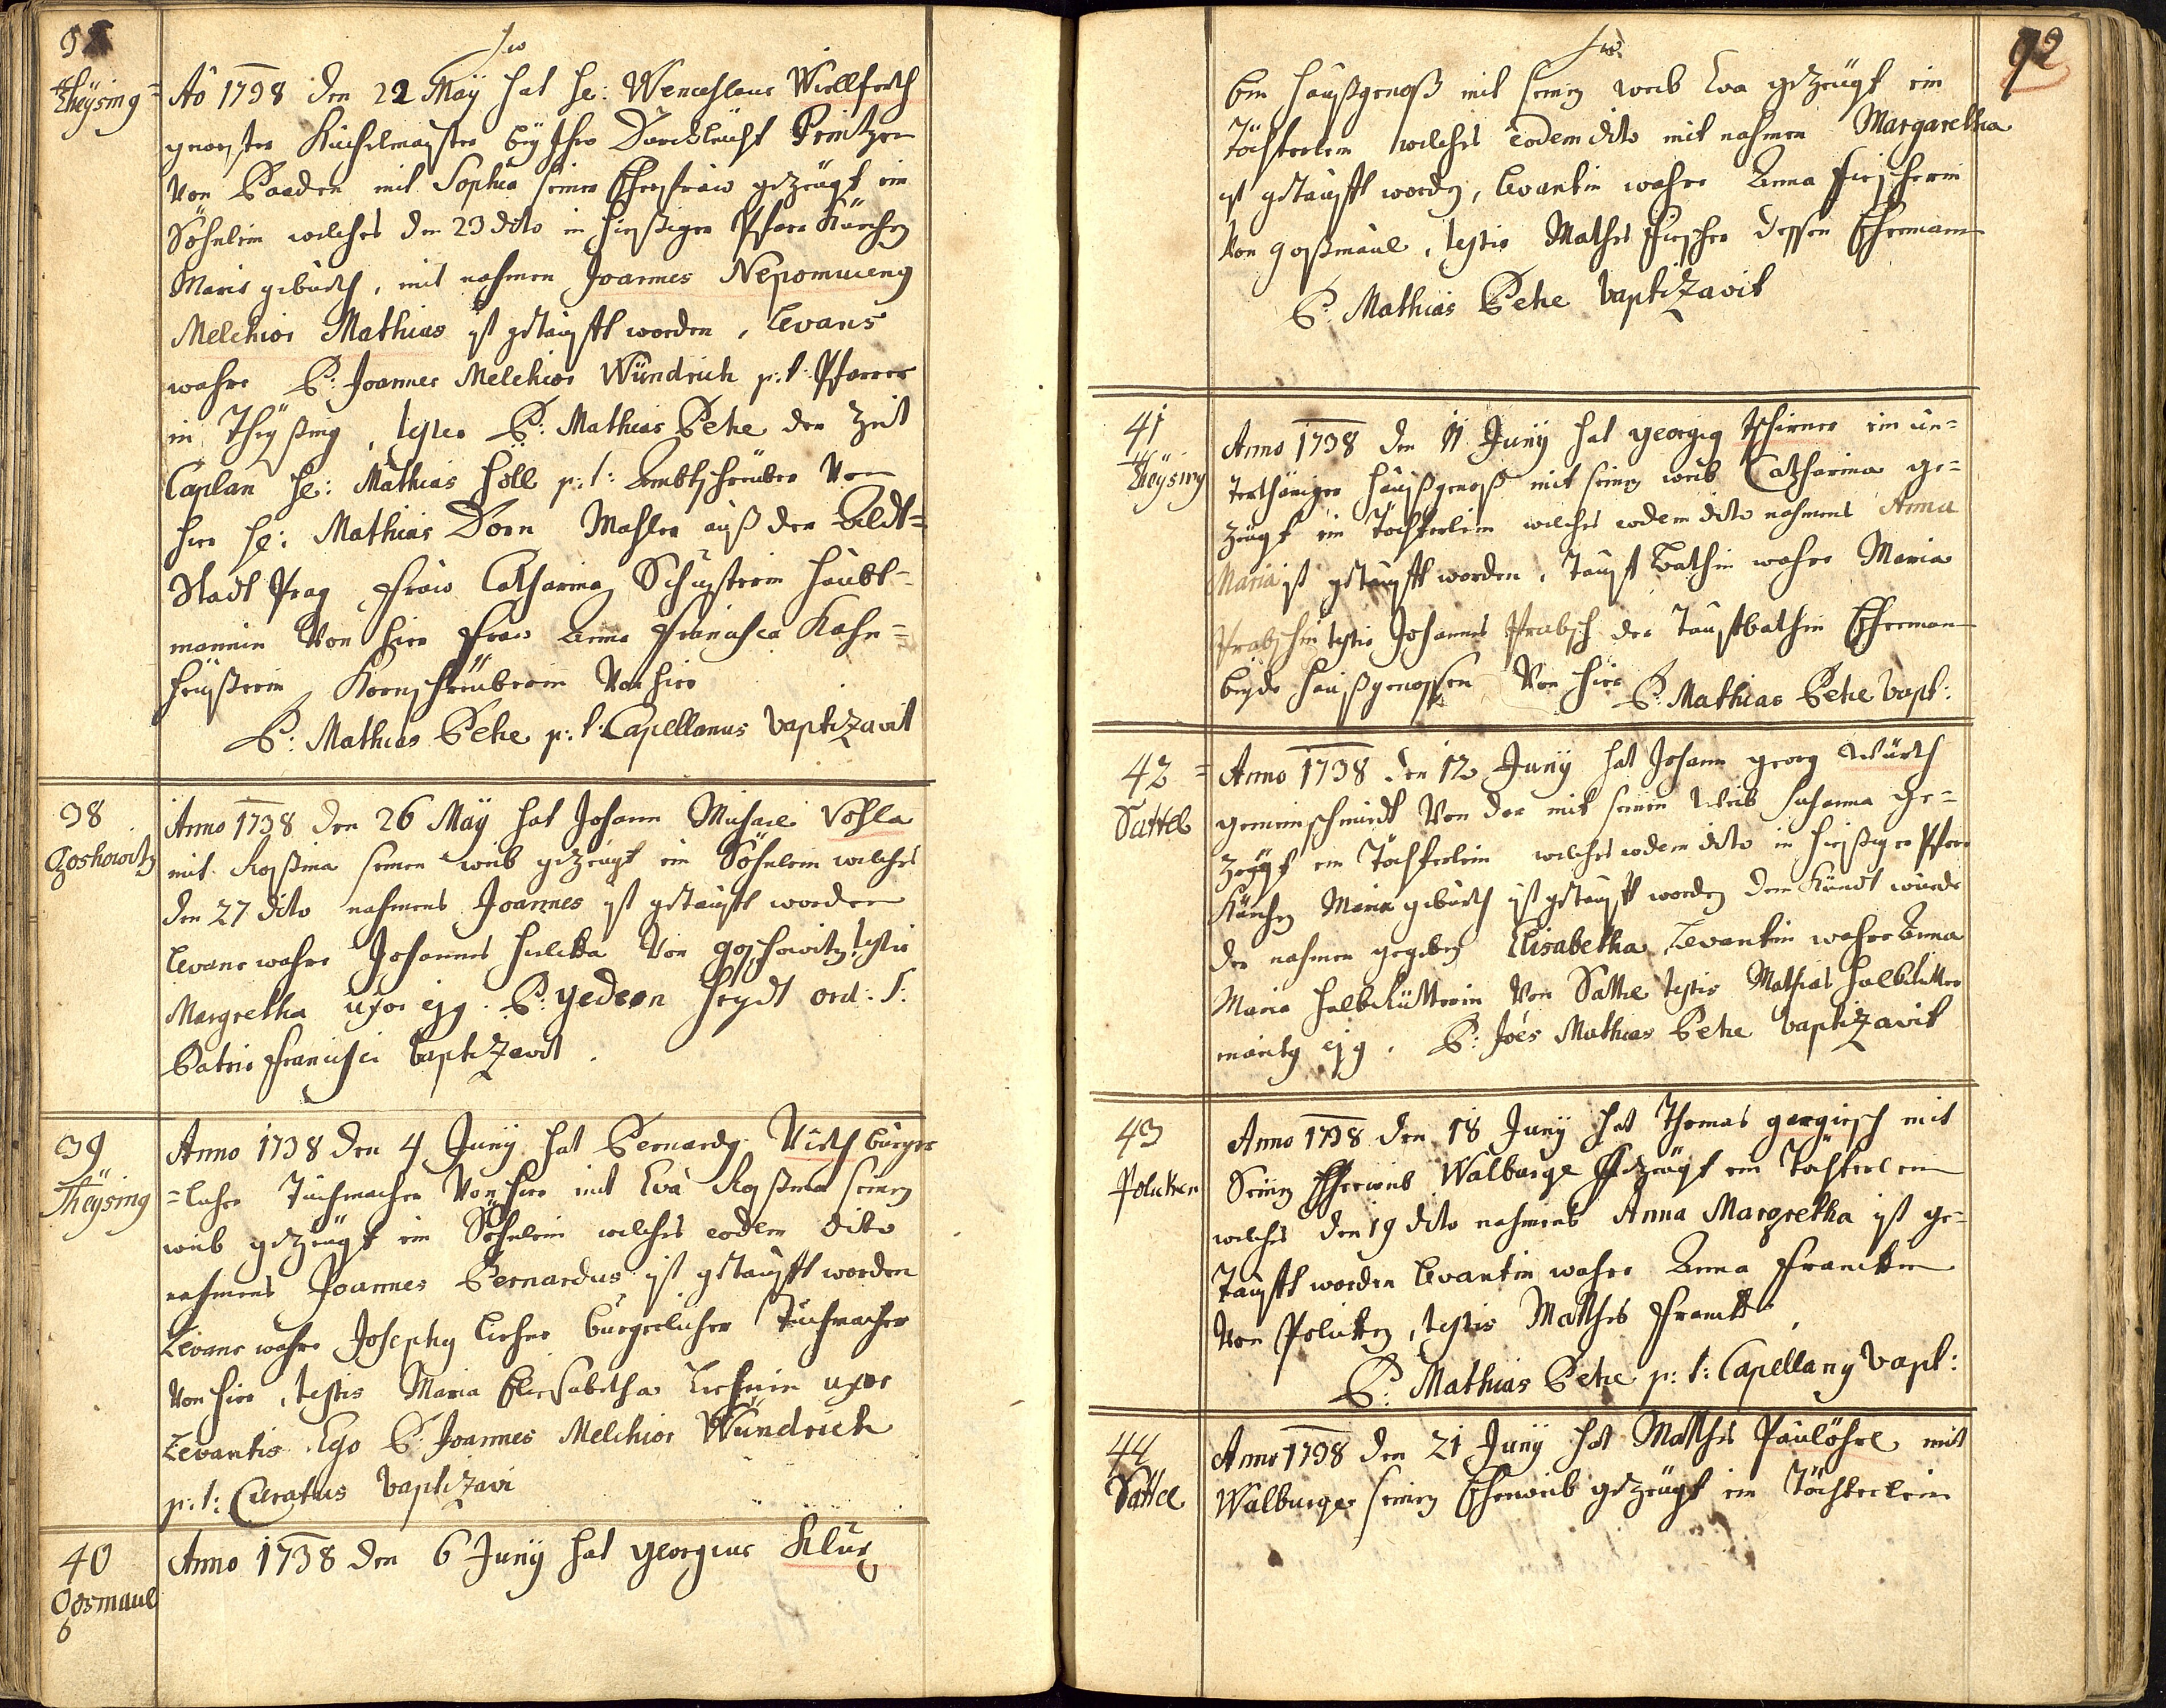 Theÿsing=
Ao 1738 den 22 Maÿ hat H: Wenceslaus Wiellferth
gewester Kuchelmeyster beÿ Ihro Durchleücht Printzen
von Baaden mit Sophia seiner Ehefraw gezeügt ein
Söhnlein welches den 23 dito in hiesiger Pfarr Kürchen
Mariae geburth, mit nahmen Joannes Nepomucenus
Melchior Mathias ist getaufft worden, Levans
wahre P: Joannes Melchior Wündrich p:t: Pfarrer
in Theÿsing, testes P: Mathias Petze der Zeit
Caplan H: Mathias Höll p:t: Ambtschreüber von
hier H: Mathias Dorn Mahler auß der Aldt=
Stadt Prag, Fraw Catharina Schusterin Haubt=
mannin von hier Fraw Anna Francisca
Kornschreüberin von hier
P: Mathias Petze p:t: Capellanus baptizavit
38
Goshowitz
Anno 1738 den 26 Maÿ hat Johann Michael Vohla
mit Rosina seinem weib gezeügt ein Söhnlein welches
den 27 dito nahmens Joannes ist getaufft worden
Levans wahre Johannes Hulcka von Goschowitz, testis
Margretha uxor ejus. P: Gedeon Heÿdt ord: S:
Patris Francisci baptizavit.
39
Theÿsing
Anno 1738 den 4 Junÿ hat Bernardus Vieth bürger=
=licher Tuchmacher von hier mit Eva Rosina seinem
weib gezeügt ein Söhnlein welches eodem dito
nahmens Joannes Bernardus ist getaufft worden
Levans wahre Josephus Liehne bürgerlicher Tuchmacher
von hier, testis Maria Elisabetha Liehnin uxor
Levantis. Ego P. Joannes Melchior Wündrich
p:t: Curatus baptizavi
40
Gosmaul
6
Anno 1738 den 6 Junÿ hat Georgius Klug
92
ein Haußgenoß mit seinem weib Eva gezeügt ein
Töchterlein welches eodem dito mit nahmen Margaretha
ist getaufft worden, Levantin wahre Anna Fischerin
von Goßmaul, testis Mathes Fischer dessen Ehemann
P: Mathias Petze baptizavit
41
Theÿsing
Anno 1738 den 11 Junÿ hat Georgius Tschirner ein un=
terthäniger Haußgenoß mit seinem weib Catharina ge=
zeügt ein Töchterlein welches eodem dito nahmens Anna
Maria ist getaufft worden, Tauff Bathin wahre Maria
Prabschin testis Johannes Prabsch der Tauffbathin Ehemann
beÿde Haußgenossen von hier P: Mathias Petze bapt:
42=
Sattel
Anno 1738 den 12 Junÿ hat Johann Georg Würth
gemeinschmidt von der mit seinem Weib Susanna ge=
zeügt ein Töchterlein welches eodem dito in hiesiger Pfarr
Kürchen Mariae geburth ist getaufft worden dem Kündt wurde
der nahmen gegeben Elisabetha Levantin wahre Anna
Maria Halbritterin von Sattel testis Mathias Halbritter
maritus ejus. P: Joes Mathias Petze baptizavit
43
Poluken
Anno 1738 den 18 Junÿ hat Thomas Gergiesch mit
Seinem Eheweib Walburga gezeügt ein Töchterlein
welches den 19 dito nahmens Anna Margretha ist ge=
taufft worden Levantin wahre Anna Franckin
von Polucken, testis Mathes Franck.
P: Mathias Petze p:t: Capellanus bapt:
44
Sattel
Anno 1738 den 21 Junÿ hat Mathes Paulöhrl mit
Walburga seinem Eheweib gezeügt ein Töchterlein